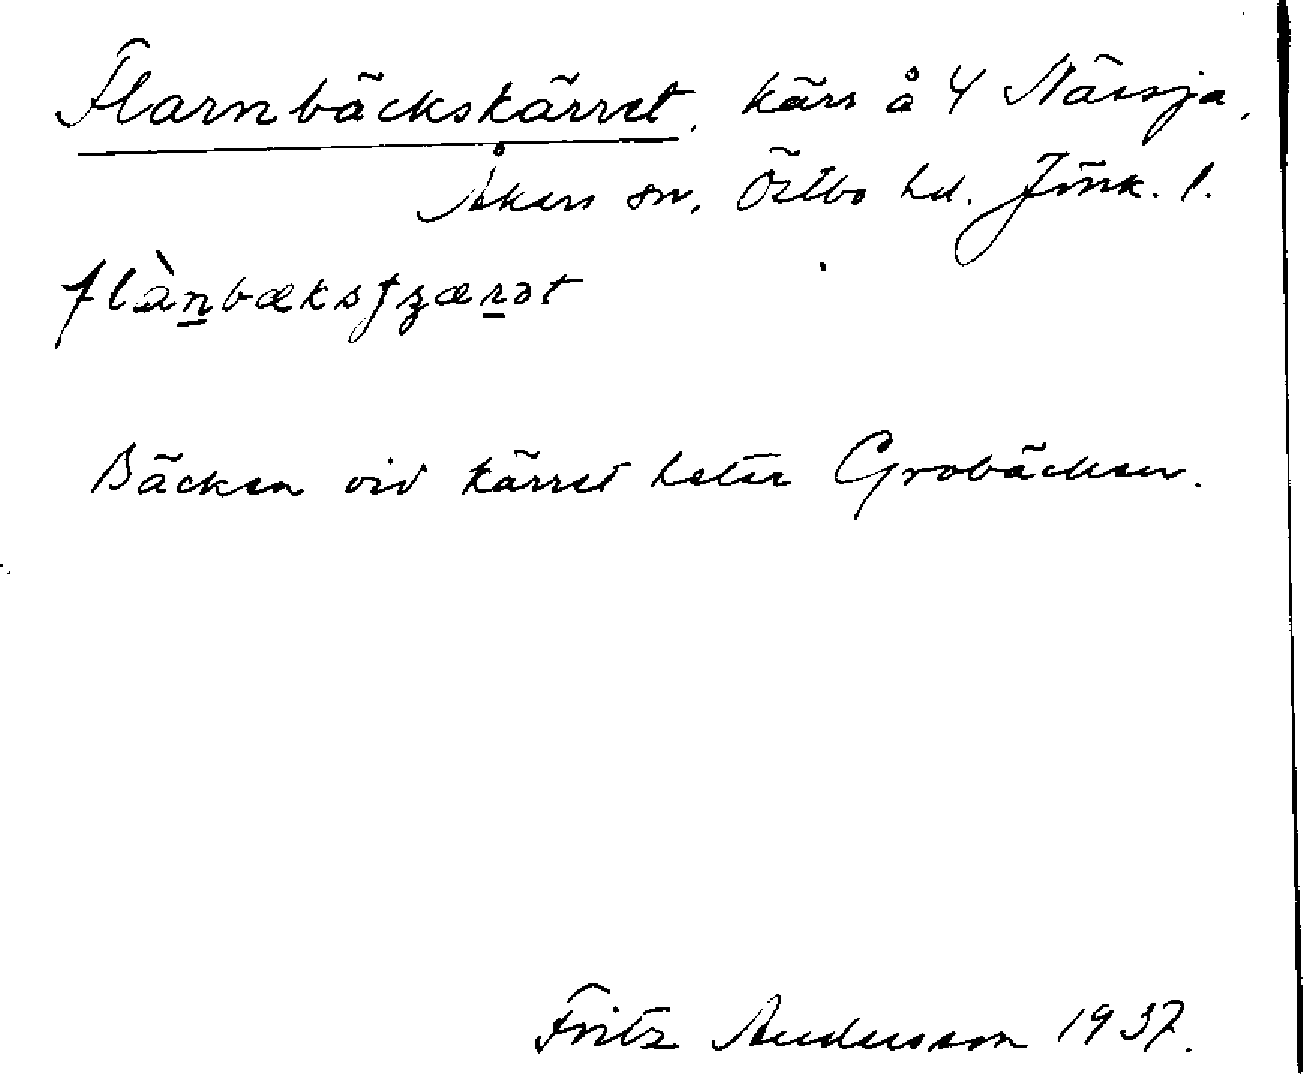 Flarnbäckskärret, kärr å 4 Nässja,
Åkers sn, Östbo hd. Jönk. l.
flàn̲bæksʃzær̲ət
Bäcken vid kärret heter Grobäcken.
Fritz Andersson 1937.